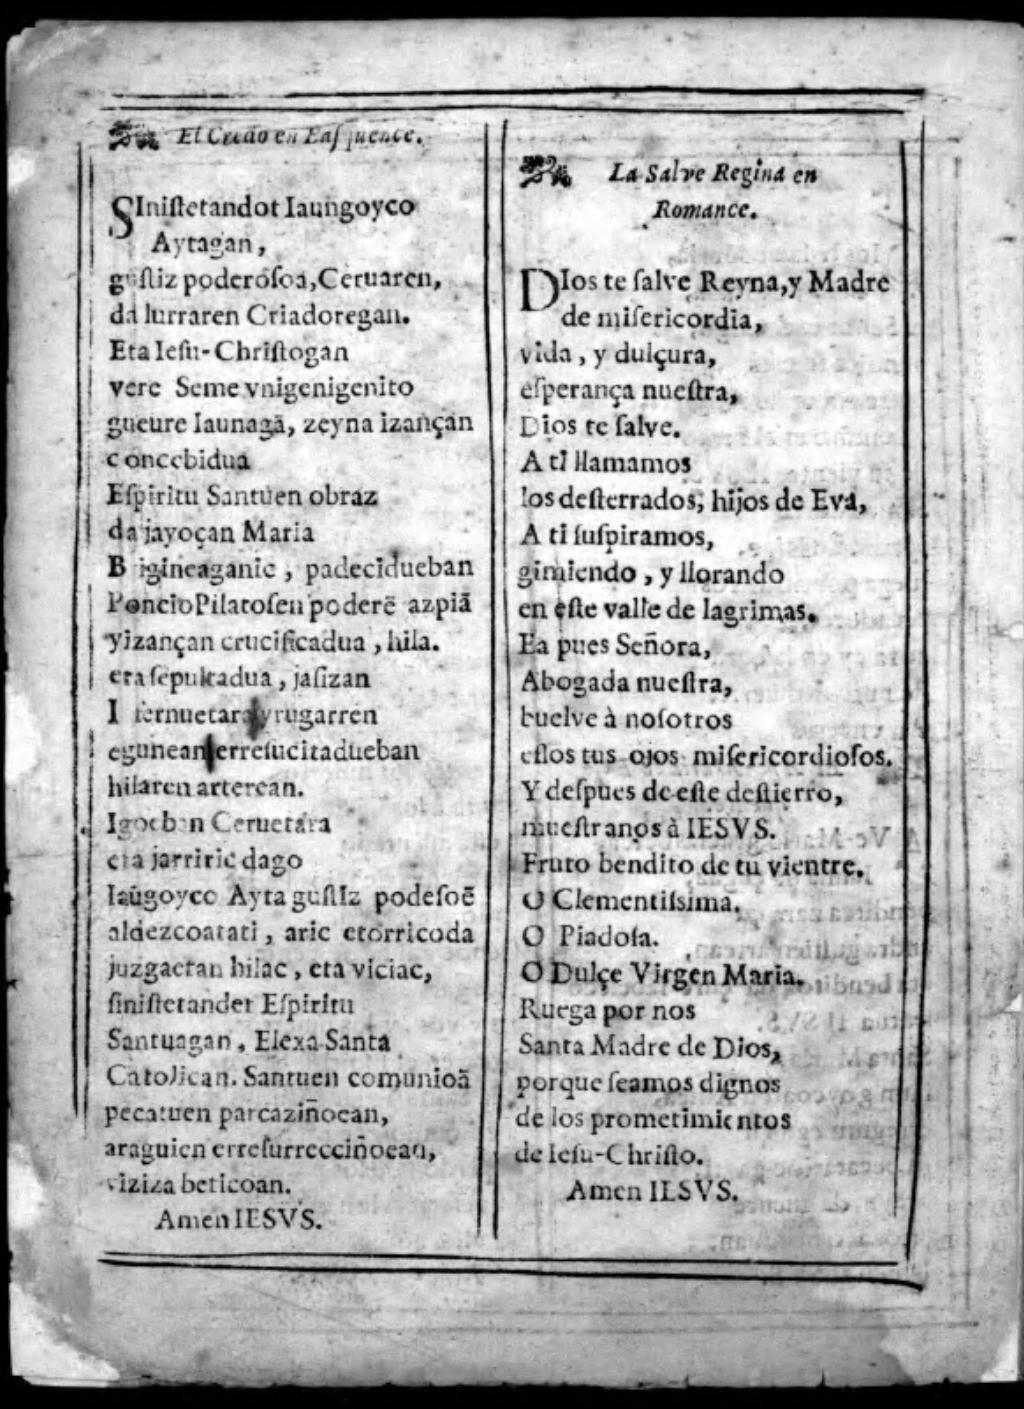 El Credo en Basquence.
SIniſtetandot Iaungoyco
Aytagan,
guſtiz poderoſoa, Ceruaren,
da lurraren Criadoregan.
Eta Ieſu-Chriſtogan
vere Seme vnigenigenito
gueure Iaunagā, zeyna izançan
concebidua
Eſpiritu Santuen obraz
da jayoçan Maria
Birgineaganic, padecidueban
PoncioPilatoſen poderē azpiā
yizançan crucificadua, hila.
eta ſepultadua, jaſizan
Infernuetara yrugarren
egunean erreſucitadueban
hilaren arterean.
Igoeban Ceruetara
eta jarriric dago
Iaūgoyco Ayta guſtIz podeſoē
aldezcoatati, aric etorricoda
juzgaetan hilac, eta viciac,
ſiniſtetandet Eſpiritu
Santuagan, Elexa Santa
Catolican. Santuen comunioā
pecatuen parcaziñoean,
araguien erreſurrecciñoean,
viziza beticoan.
Amen IESVS.
La Salve Regina en
Romance.
DIos te ſalve Reyna, y Madre
de miſericordia,
vida, y dulçura,
eſperança nueſtra,
Dios te ſalve.
A tI llamamos
los deſterrados, hijos de Eva,
A ti ſuſpiramos,
gimiendo, y llorando
en eſte valle de lagrimas.
Ea pues Señora,
Abogada nueſtra,
buelve à noſotros
eſſos tus ojos miſericordioſos.
Y deſpues de eſte deſtierro,
mueſtranos à IESVS.
Fruto bendito de tu vientre.
O Clementiſsima.
O Piadoſa.
O Dulçe Virgen Maria.
Ruega por nos
Santa Madre de Dios,
porque ſeamos dignos
de los prometimientos
de Ieſu-Chriſto.
Amen IESVS.